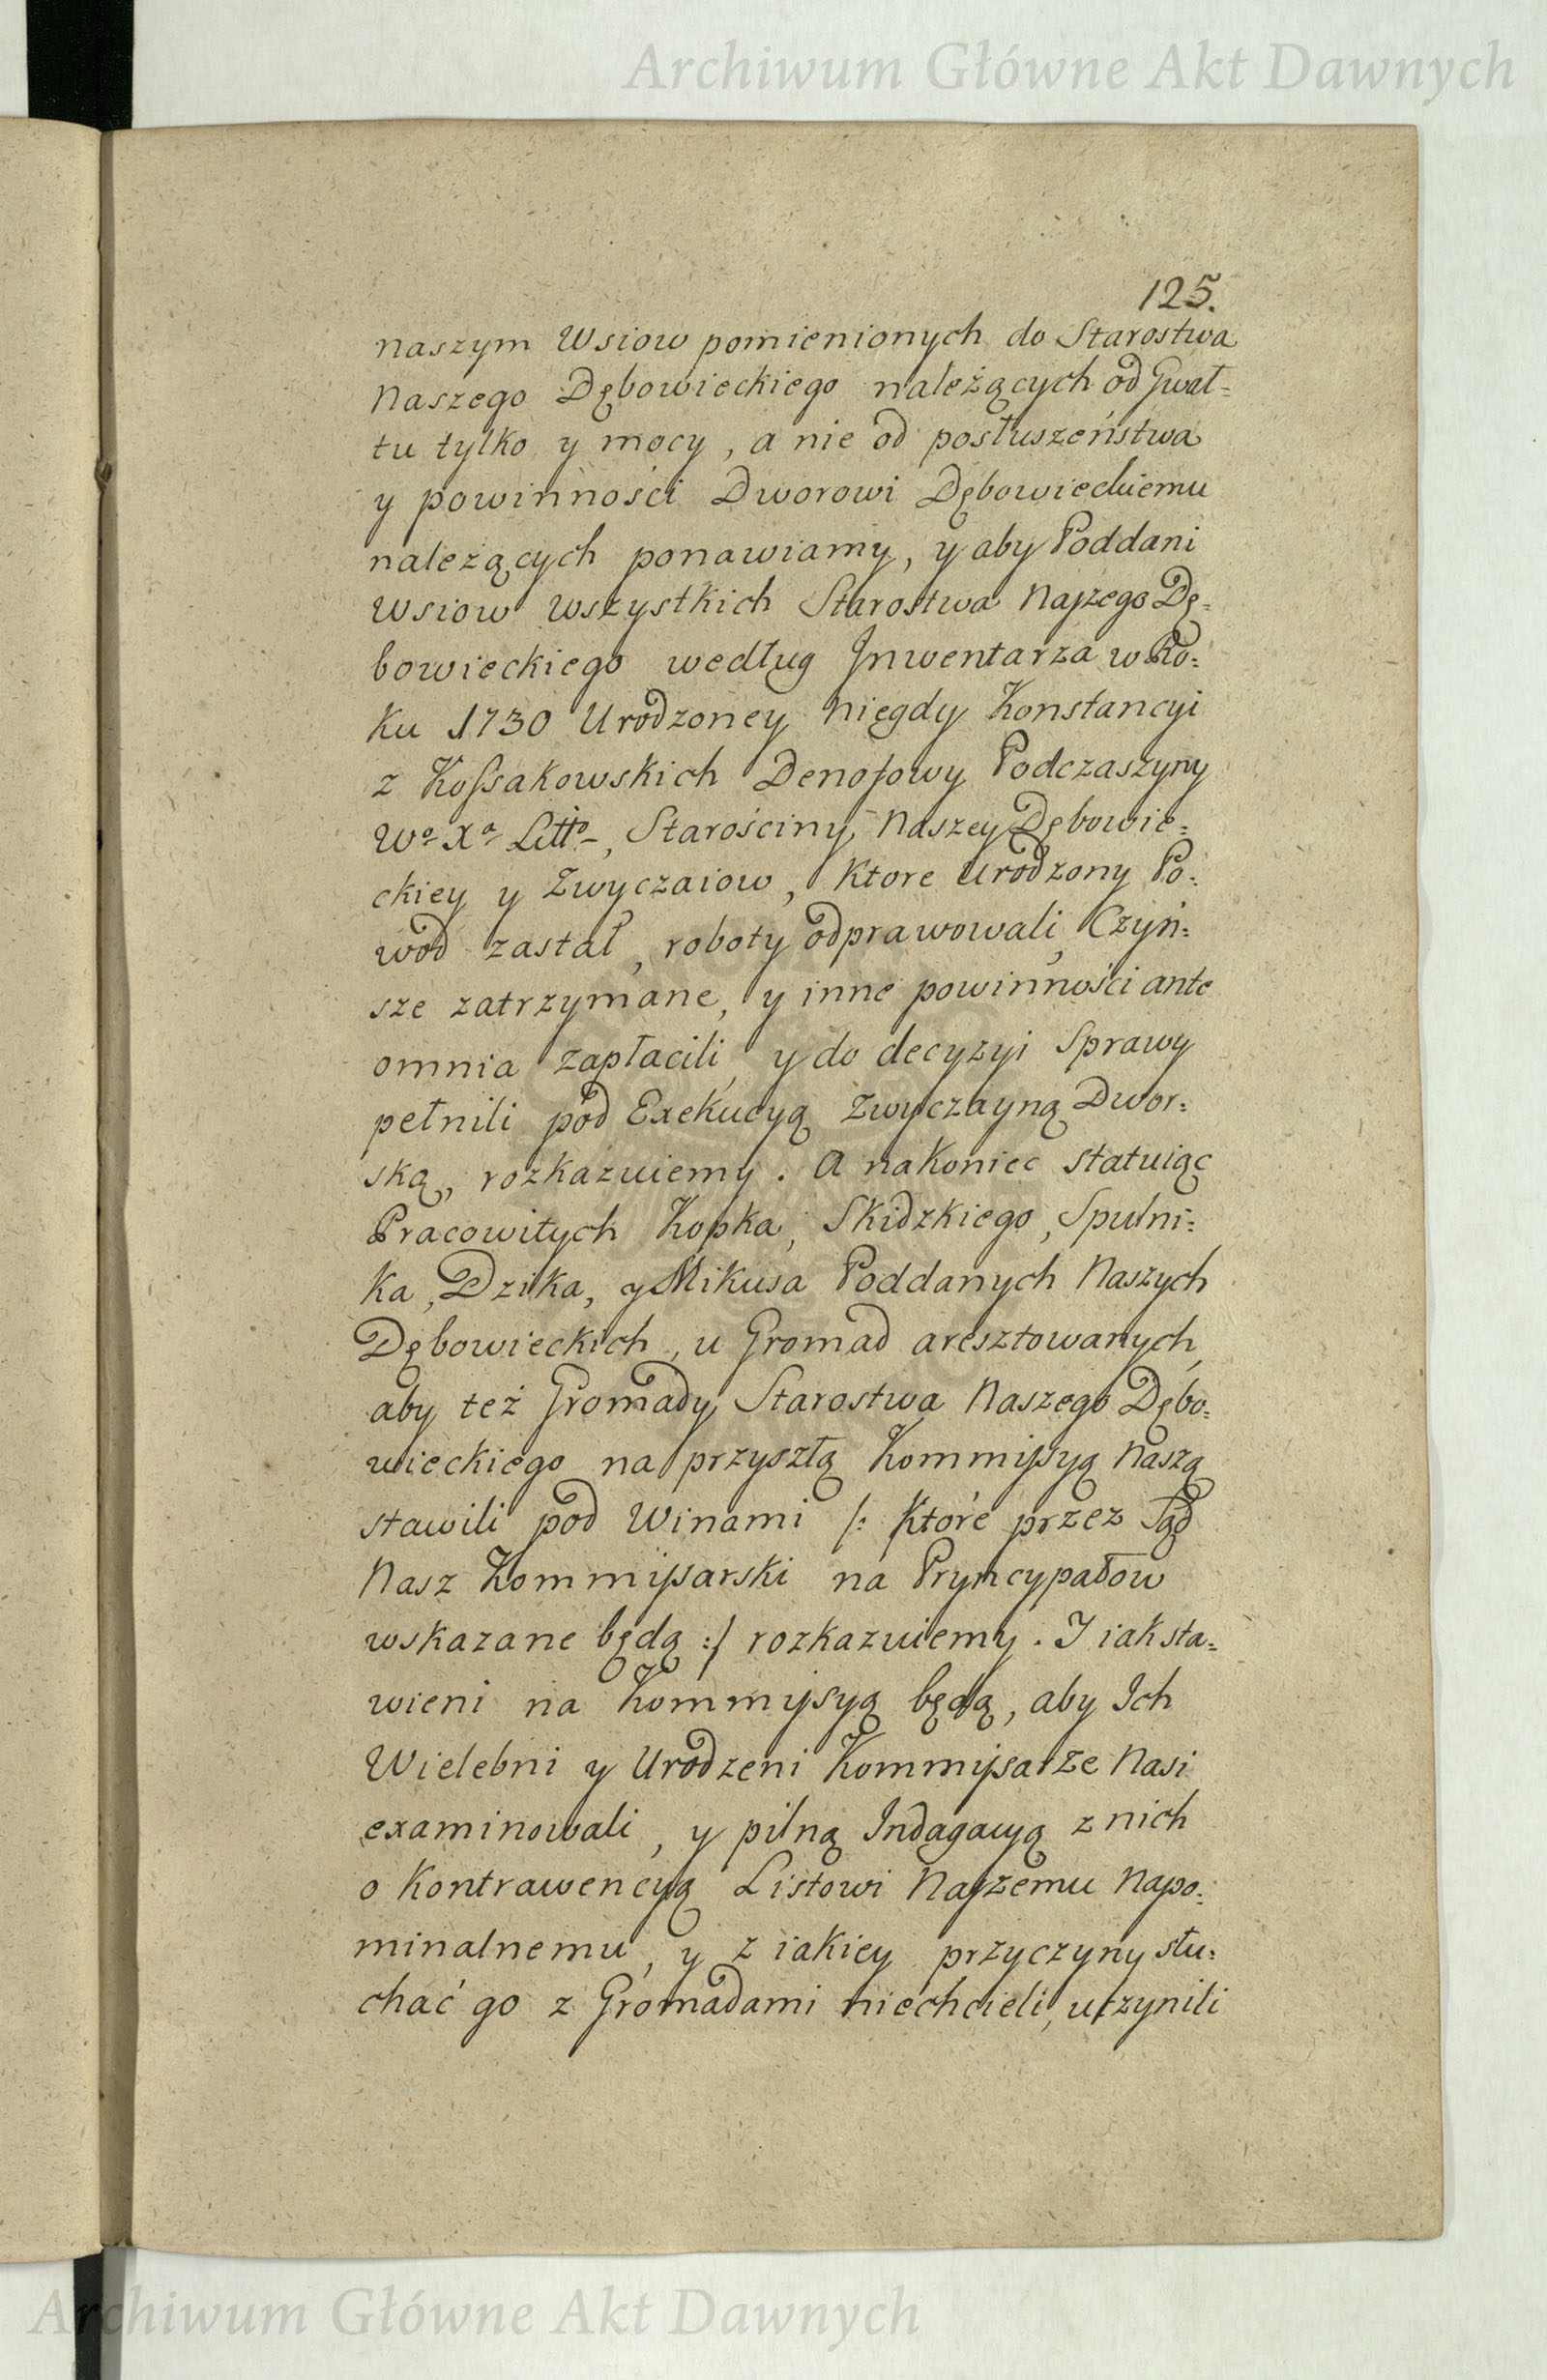 Archiwum Główne Akt Dawnych
125.
naszym Wsiow pomienionych do Starostwa
Naszego Dębowieckiego należących od Gwał=
tu tylko y mocy, a nie od posłuszeństwa
y powinności Dworowi Dębowieckiemu
należących ponawiamy, y aby Poddani
Wsiow wszystkich Starostwa Naszego Dę=
bowieckiego według Jnwentarza w Ro=
ku 1730 Urodzoney niegdy Konstancyi
z Kossakowskich Denofowy Podczaszyny
Wo Xa Litto, Starościny Naszey Dębowie=
ckiey y Zwyczaiow, Ktore Urodzony Po=
wod zastał, roboty odprawowali, Czyn=
sze zatrzymane, y inne powinności ante
omnia zapłacili, y do decyzyi Sprawy
pełnili pod Exekucyą Zwyczayną Dwor=
ską, rozkazuiemy. A nakoniec statuiąc
Pracowitych Kopka, Skidzkiego, Spulni=
ka, Dzika, y Mikusa Poddanych Naszych
Dębowieckich, u Gromad aresztowanych,
aby też Gromady Starostwa Naszego Dębo=
wieckiego na przyszłą Kommissyą Naszą
stawili pod Winami /: Ktore przez Sąd
Nasz Kommissarski na Pryncypałow
wskazane będą :/ rozkazuiemy. I iak sta=
wieni na Kommissyą będą, aby Ich
Wielebni y Urodzeni Kommissarze Nasi
examinowali, y pilną Indagacyą z nich
o Kontrawencyą Listowi Naszemu Napo=
minalnemu, y z iakiey przyczyny słu=
chać go z Gromadami niechcieli, uczynili
Archiwum Główne Akt Dawnych